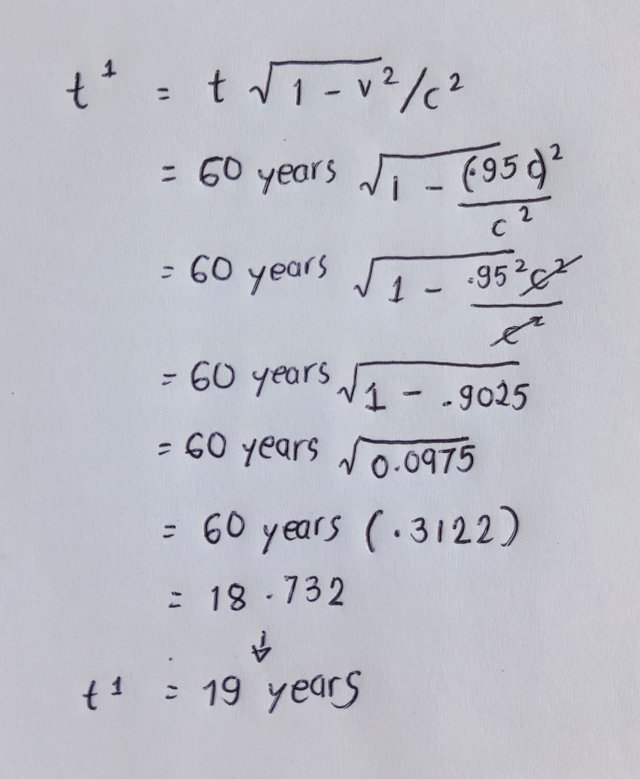 t¹ = t √1 - v²/c²
= 60 years √1 - (.95c)²/c²
= 60 years √1 - .95²c²/c²
= 60 years √1 - .9025
= 60 years √0.0975
= 60 years (.3122)
= 18.732
↓
t¹ = 19 years